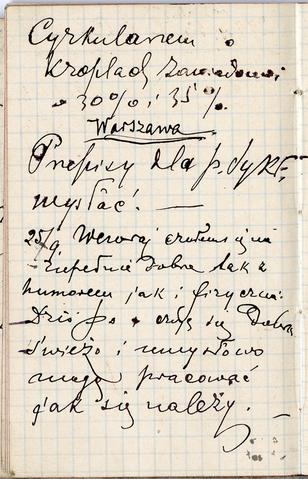 Cyrkularzem o
kroplach zawiadomić
30% i 35%.
Warszawa
Przepisy dla p. dyr.
wysłać! —
25/9. Wczoraj czułem się nie
zupełnie dobrze tak z
humorem jak i fizycznie.
Dziś czuję się dobrze
świeżo i umysłowo
mogę pracować
jak się należy.